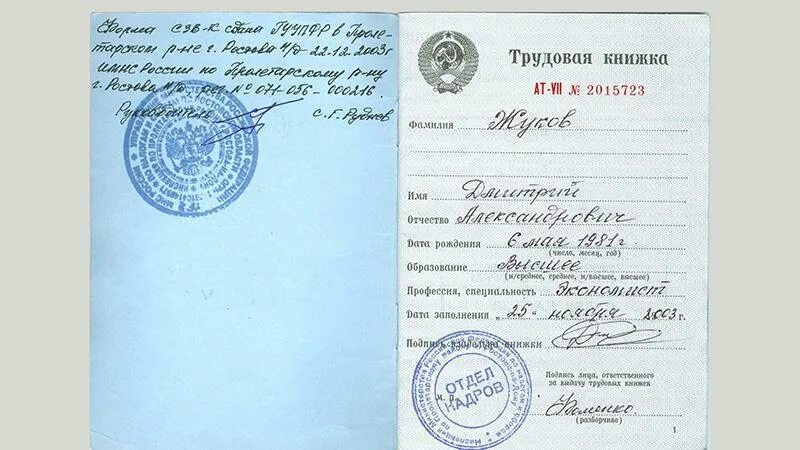 Форма СЗВ-К сдана ГУУПФР в Проле-
тарском р-не г. Ростова н/Д 22.12.2003г
ИМНС России по Пролетарскому р-ну
г. Ростова н/Д, рег. № 071-056-000216.
Руководитель С.Г. Руднев
Трудовая книжка
АТ-VII № 2015723
Фамилия Жуков
Имя Дмитрий
Отчество Александрович
Дата рождения 6 мая 1981г.
(число, месяц, год)
Образование Высшее
(н/среднее, среднее, н/высшее, высшее)
Профессия, специальность Экономист
Дата заполнения „25" ноября 2003 г.
Подпись владельца книжки
ОТДЕЛ
КАДРОВ
М. П.
Подпись лица, ответственного
за выдачу трудовых книжек
Фоменко
(разборчиво)
1